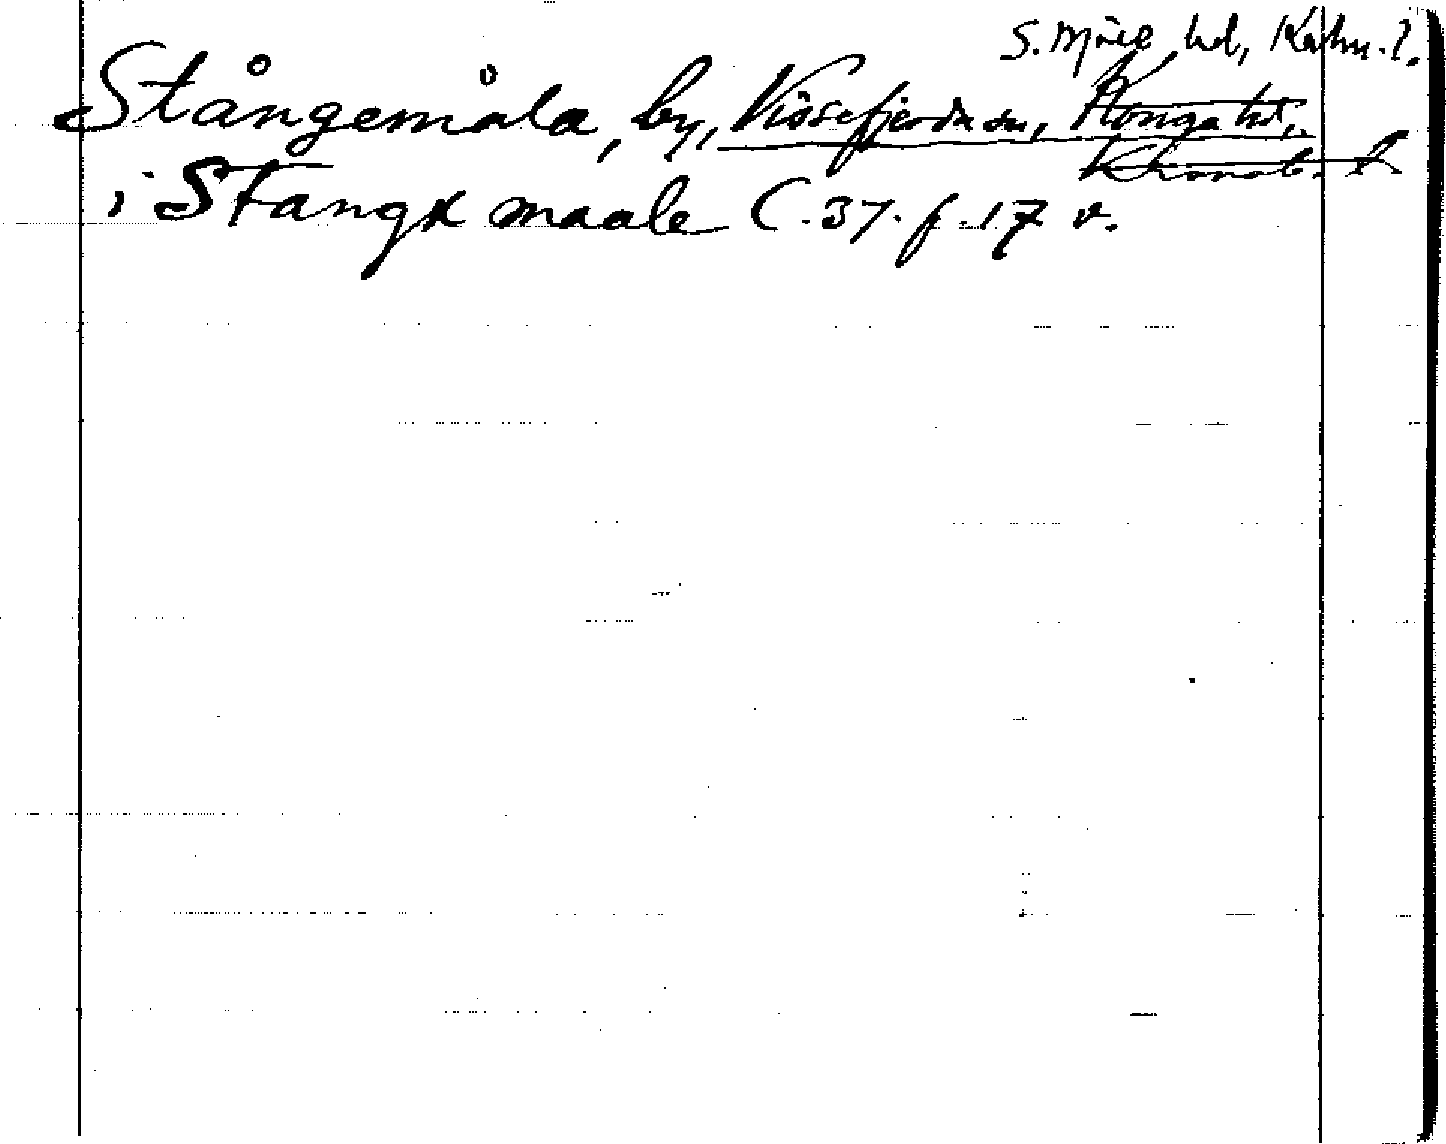 S. Möre hd, Kalm. l.
Stångemåla, by, Vissefjerda sn, Konga hd,
Kronob. l
i Stangx maale C. 37. f. 17 v.